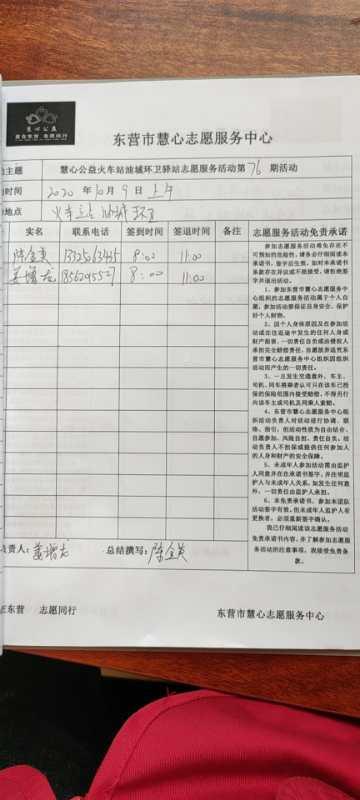 慧心公益
爱在东营 志愿同行
东营市慧心志愿服务中心
主题 慧心公益火车站油城环卫驿站志愿服务活动第76期活动
时间 2020年10月9日上午
地点 火车站油城环卫
实名 联系电话 签到时间 签退时间 备注
陈金英 8:00 11:00
姜增龙 8:00 11:00
志愿服务活动免责承诺
参加志愿服务活动难免存在不
可预知的危险性，请务必仔细阅读本
承诺书，签字后生效。如对本承诺书
条款存在异议或不能接受，请拒绝签
字并退出活动。
1、参加东营市慧心志愿服务中
心组织的志愿服务活动属于个人自
愿，参加活动要保证自身安全，保护
好个人财物。
2、因个人身体原因及在参加活
动或在往返途中发生的任何人身或
财产损害，一切责任自负或由侵权人
承担完全赔偿责任，
志愿服务中心组织因组织
活动而产生的一切责任。
3、一旦发生交通意外，车主、
司机、同车搭乘者认可只在该车已投
保的保险范围内接受赔偿，不得另行
向该车主或司机及同乘人索赔。
4、东营市慧心志愿服务中心组
织活动负责人对活动进行协调、联
络、指引，但活动性质为自由结合、
自愿参加、风险自担、责任自负，活
动负责人不担保或提供任何参加人
的人身和财产的安全保障。
5、未成年人参加活动需由监护
人同意并在在承诺书签字，并注明监
护人与未成年人关系。如发生任何意
外，一切责任由监护人承担。
6、本免责承诺书，参加本团队
活动签字有效。但未成年人监护人有
更换者，必须重新签字确认。
我已仔细阅读该志愿服务活动
免责承诺书内容，并了解参加志愿服
务活动的注意事项，我接受免责条
款。
责人：姜增龙 总结撰写：陈金英
在东营 志愿同行 东营市慧心志愿服务中心